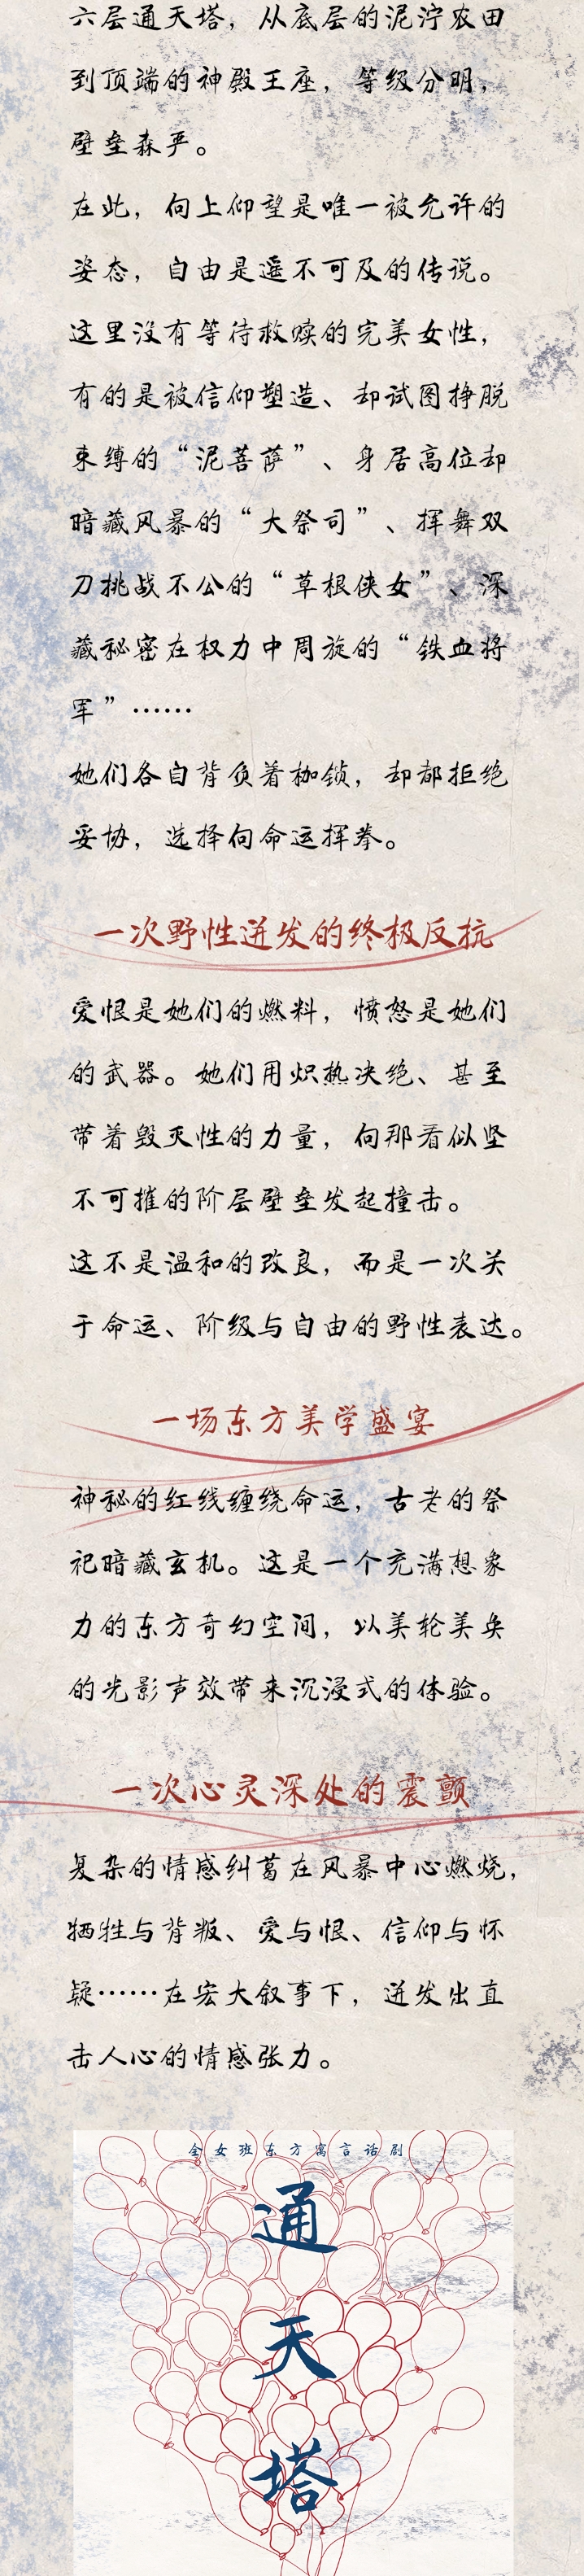 六层通天塔，从底层的泥泞农田
到顶端的神殿王座，等级分明，
壁垒森严。
在此，向上仰望是唯一被允许的
姿态，自由是遥不可及的传说。
这里没有等待救赎的完美女性，
有的是被信仰塑造、却试图挣脱
束缚的“泥菩萨”、身居高位却
暗藏风暴的“大祭司”、挥舞双
刀挑战不公的“草根侠女”、深
藏秘密在权力中周旋的“铁血将
军”……
她们各自背负着枷锁，却都拒绝
妥协，选择向命运挥拳。
一次野性迸发的终极反抗
爱恨是她们的燃料，愤怒是她们
的武器。她们用炽热决绝、甚至
带着毁灭性的力量，向那看似坚
不可摧的阶层壁垒发起撞击。
这不是温和的改良，而是一次关
于命运、阶级与自由的野性表达。
一场东方美学盛宴
神秘的红线缠绕命运，古老的祭
祀暗藏玄机。这是一个充满想象
力的东方奇幻空间，以美轮美奂
的光影声效带来沉浸式的体验。
一次心灵深处的震颤
复杂的情感纠葛在风暴中心燃烧，
牺牲与背叛、爱与恨、信仰与怀
疑……在宏大叙事下，迸发出直
击人心的情感张力。
全女班东方寓言话剧
通
天
塔